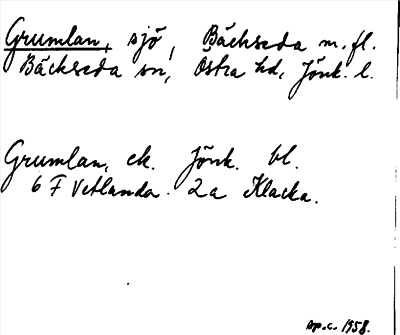 Grumlan, sjö, Bäckseda m. fl.
Bäckseda sn, Östra hd, Jönk. l.
Grumlan, ek. Jönk. bl.
6 F Vetlanda. 2a Klacka.
op.c. 1958.